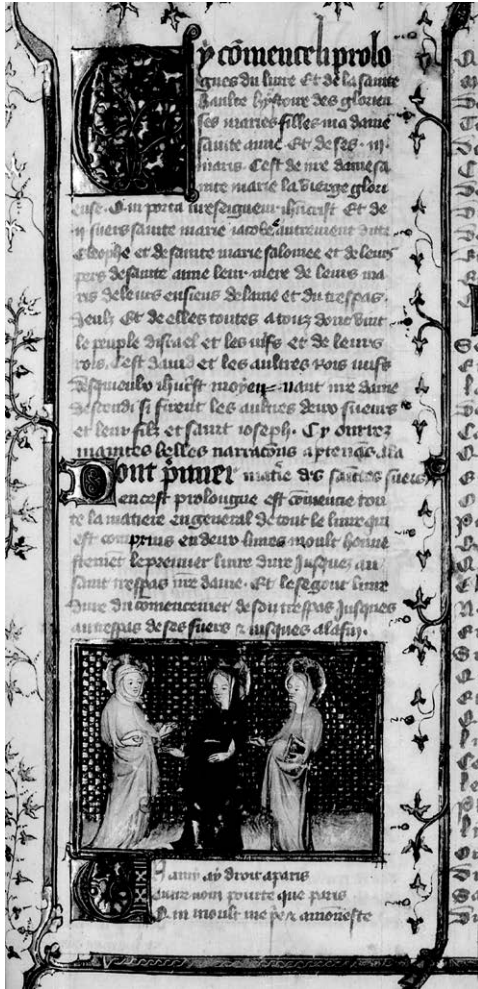 Cy cōmence li prolo
gues du liure Et de la sainte
haulte hystoire des glorieu
ses maries filles ma dame
sainte anne Et de ses .iii.
maris. Cest de nre dame sa
inte marie la vierge glori
euse. Q̄ui porta nre seigneur ihūcrist Et de
ij suers sainte marie iacobe autrement dite
Cleophe et de sainte marie salomee et de leurs
peres de sainte anne leur mere de leurs ma
ris de leurs ensiens de la vie et du trespas.
diceulz Et de elles toutes a touz dont vint
le peuple disrael et les uifs et de leurs
rois. Cest dauid et les aultres rois iuifs
desqueulx ihūcrist moyennant nre dame
descendi si firent les aultres deux sueurs
et leur filz et saint ioseph. Cy ourrez
maintes belles narracōns aptenās a la
Dont p̄mier matie des saītes suers
en cest prolongue est cōmencie tou
te la matiere en general de tout le liure qui
est comprins en deux liures moult hōnne
stemēt le premier liure dure Jusques au
saint trespas nre dame. Et le segont liure
dure du cōmencemēt de son trespas Jusques
au trespas de ses suers et iusques a la fin.
ay droit a paris
nom pourte que paris
Q̄ui moult me pe amoneste